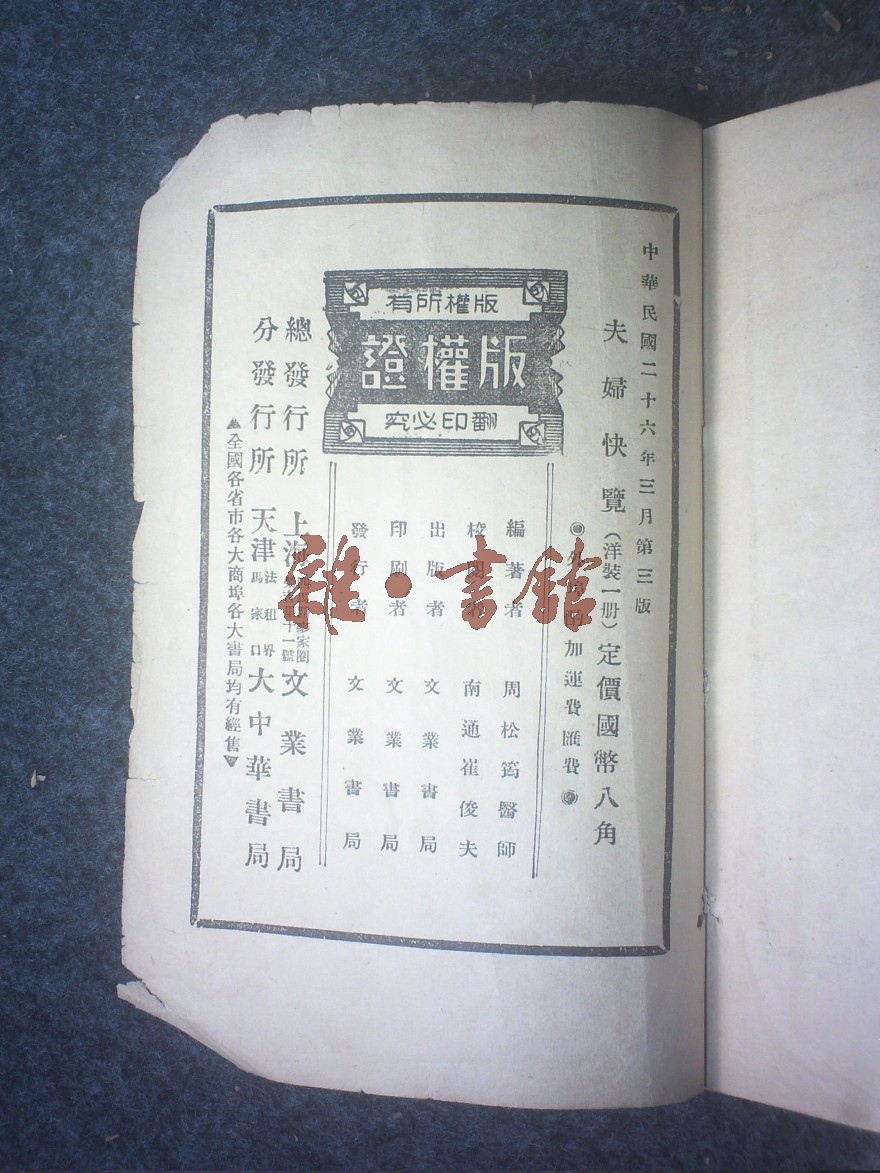 中華民國二十六年三月第三版
夫婦快覽(洋裝一册)定價國幣八角
加運費匯費
編著者 周松筠醫師
校 者 南通崔俊夫
出版者 文業書局
印刷者 文業書局
發行者 文業書局
版權所有
版權證
翻印必究
總發行所 上海 文業書局
分發行所 天津法租界馬家口 大中華書局
▲全國各省市各大商埠各大書局均有經售▼
雜·書館